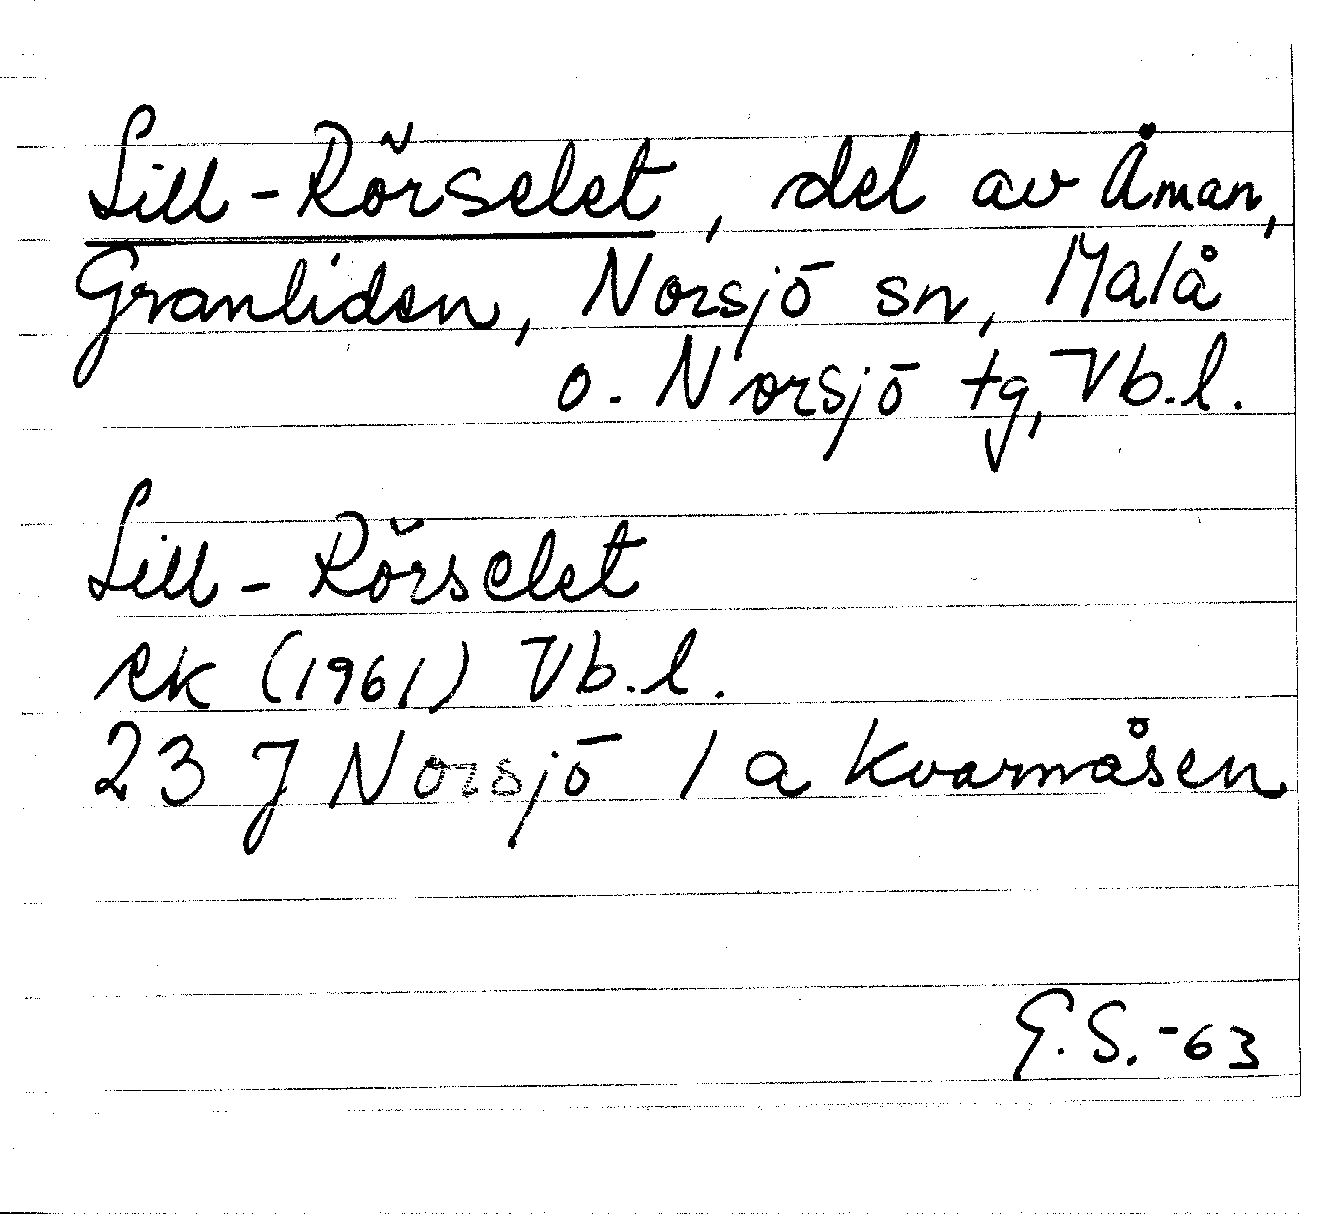 Lill-Rörselet, del av Åman,
Granliden, Norsjö sn, Malå
o. Norsjö tg, Vb.l.
Lill-Rörselet
ek (1961) Vb.l.
23 J Norsjö 1 a Kvarnåsen
G.S.-63